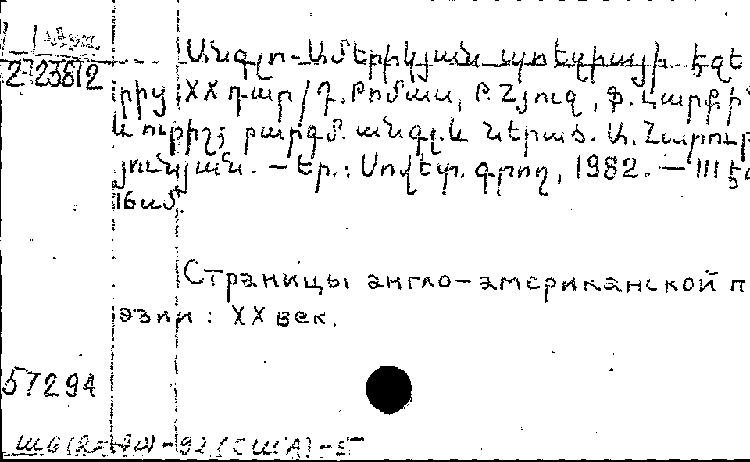 2-23812
Անգլո-Ամերիկյան պոեզիայի էջե
րից XX դար/Դ. Թոմաս, Թ. Հյուզ, Ֆ. Լարքի
և ուրիշ. թարգմ. անգլ. և ներած. Ա. Հարութ
յունյան. — Եր.: Սովետ. գրող, 1982. — 111 էջ
16 սմ.
Страницы англо-американской п
эзии: XX век.
57294